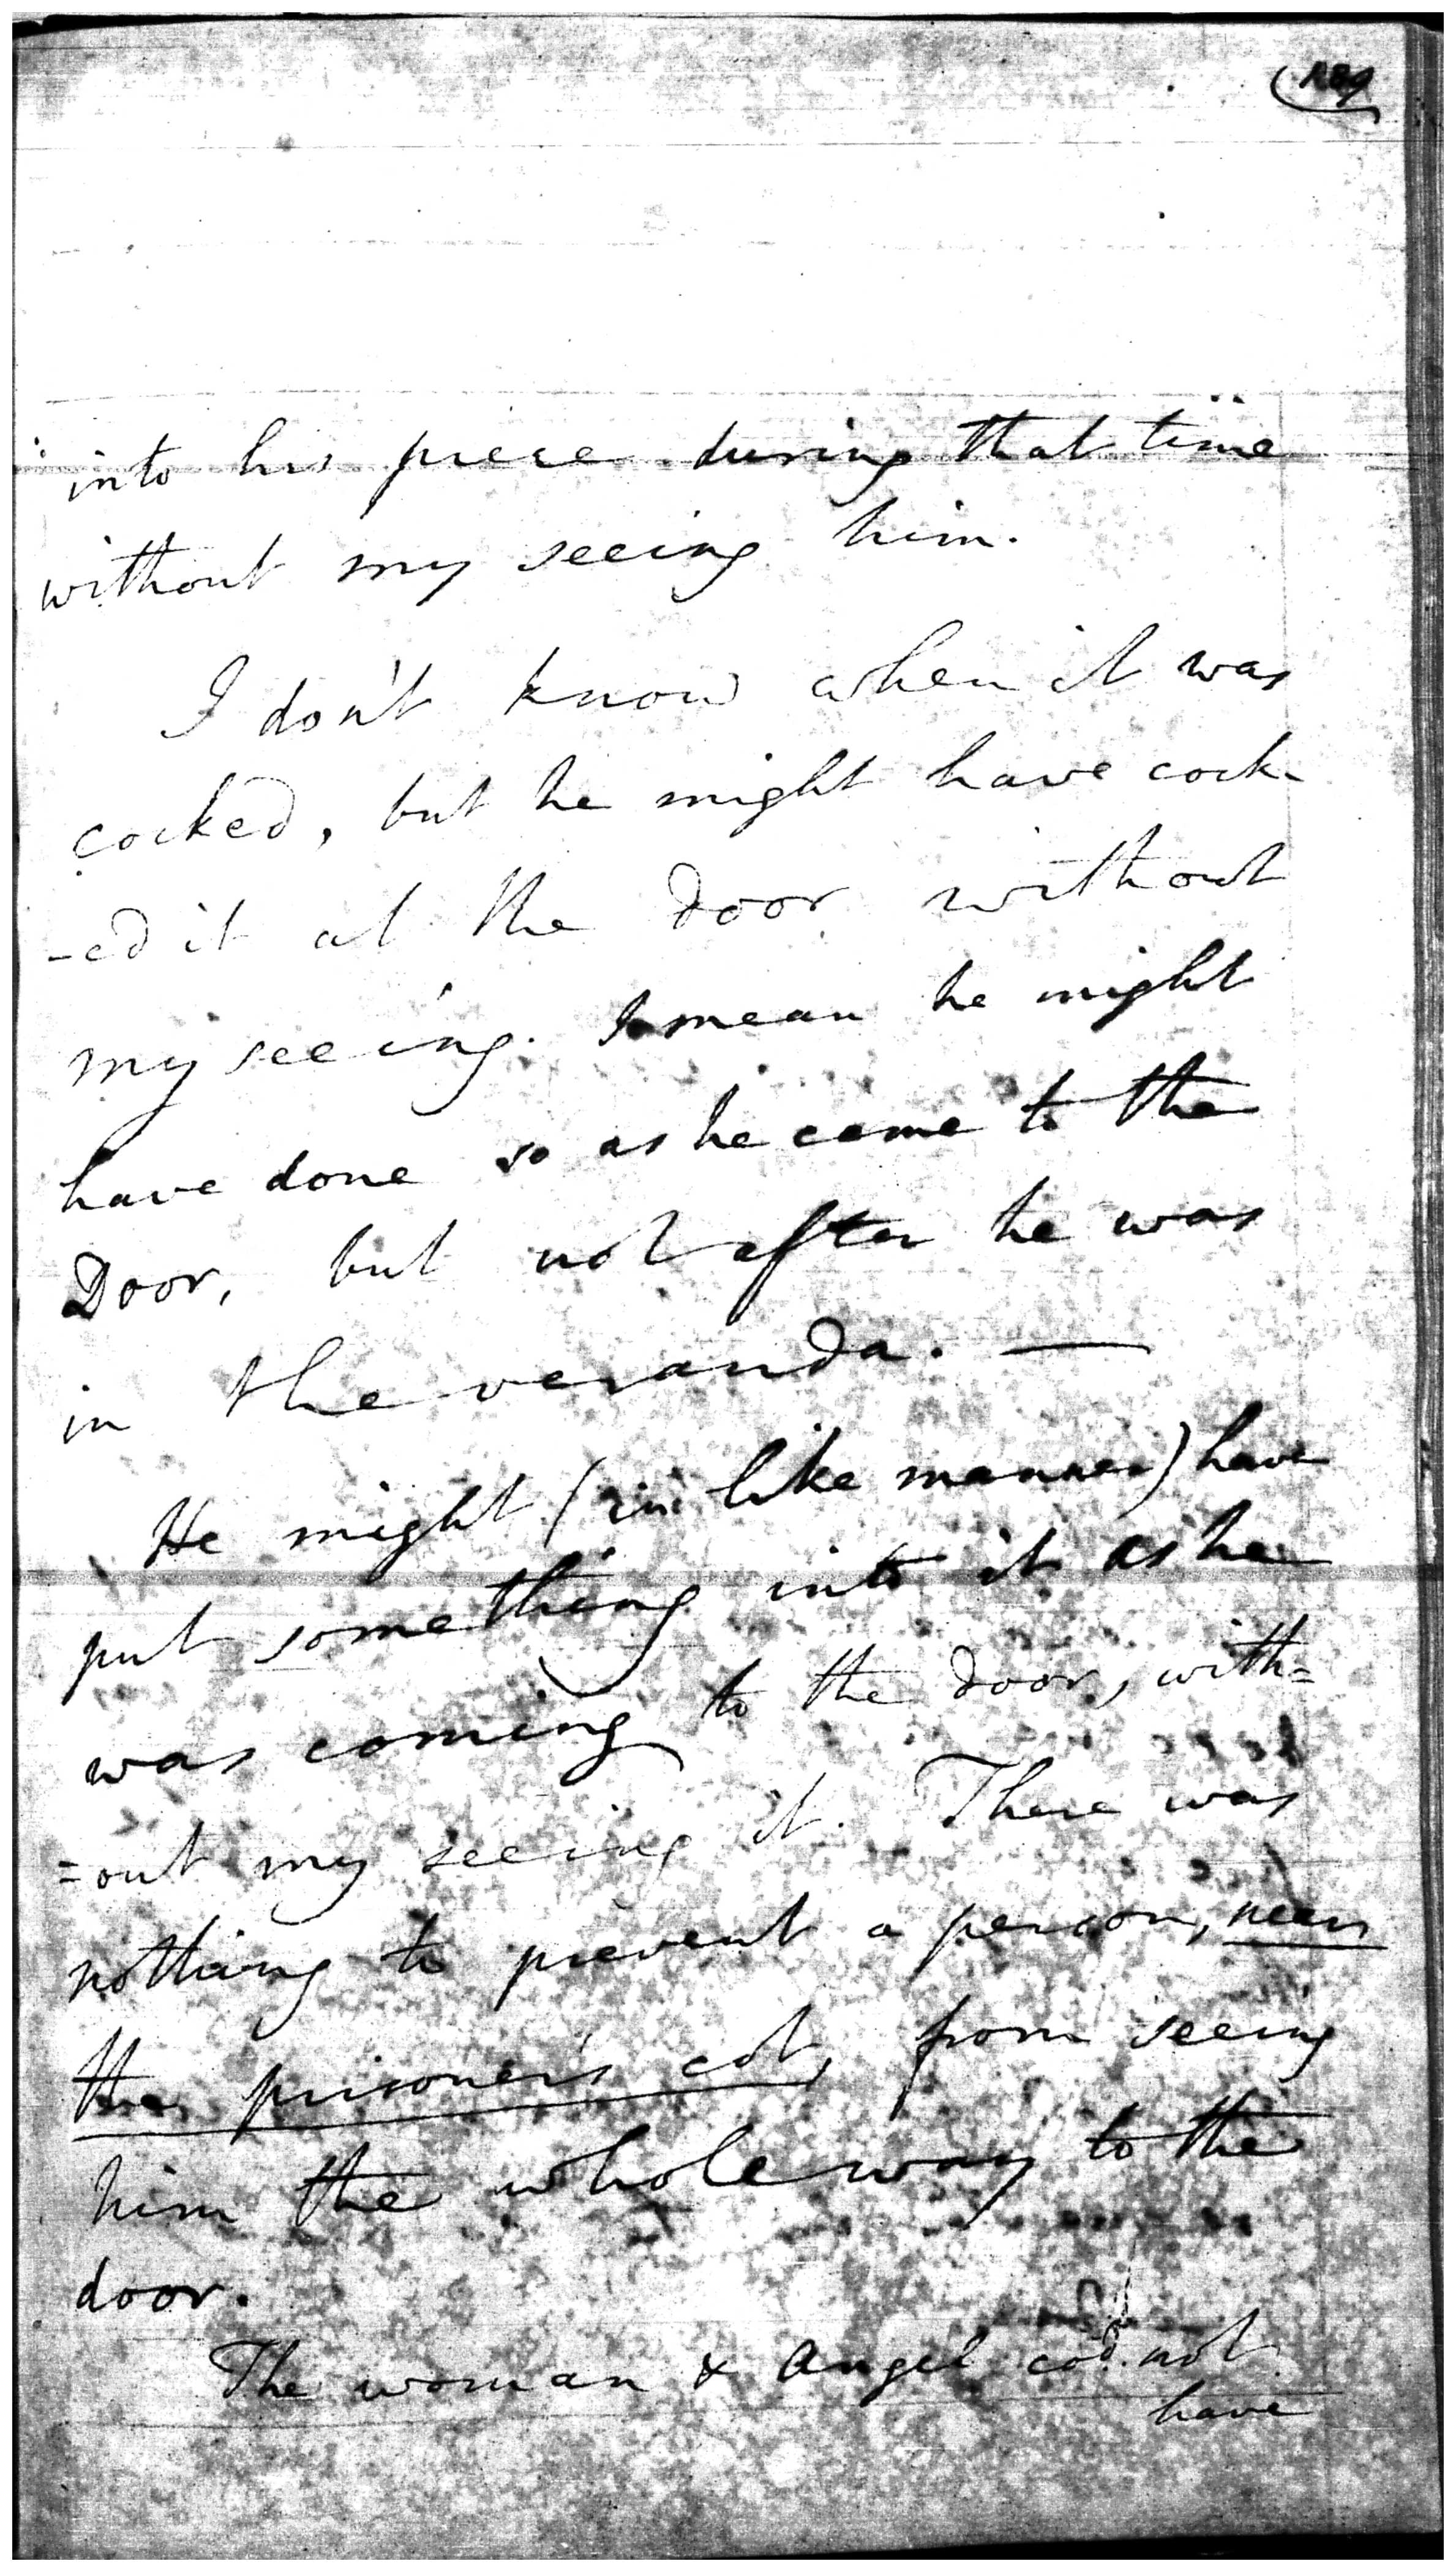 into his piece during that time
without my seeing him.
I don't know when it was
cocked, but he might have cock-
-ed it at the door without
my seeing. I mean he might
have done so as he came to the
Door, but not after he was
in the veranda. —
He might (in like manner) have
put something into it as he
was coming to the door, with=
=out my seeing it. There was
nothing to prevent a person, near
the prisoner's cot, from seeing
him the whole way to the
door.
The woman & Angel cod. not
have